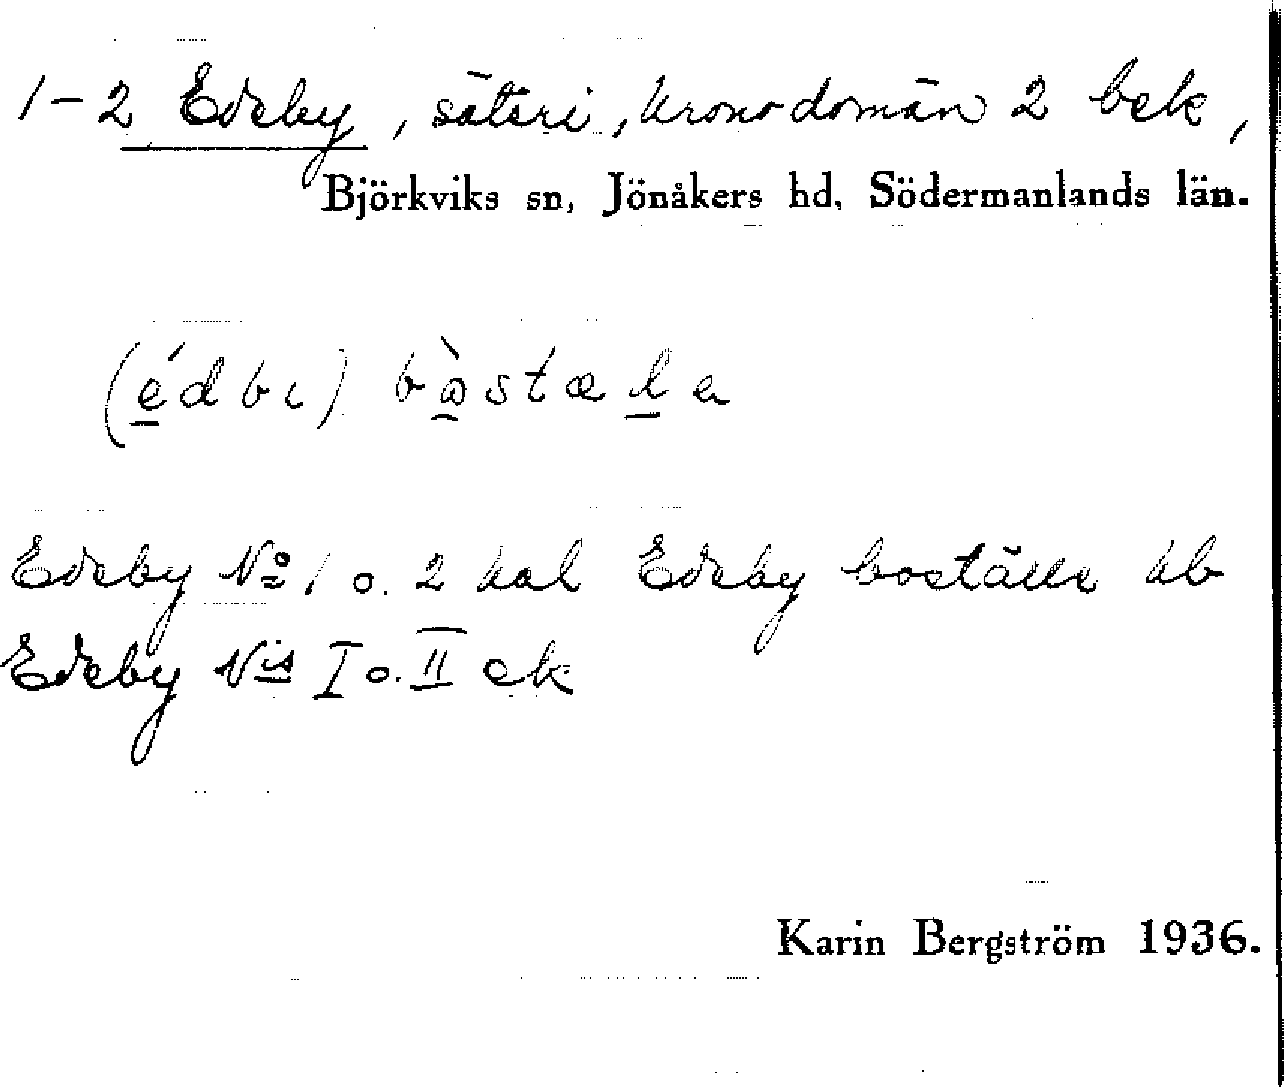 1-2 Edeby, säteri, kronodomän 2 bek,
Björkviks sn, Jönåkers hd, Södermanlands län.
(édbi)
Edeby No 1 o. 2 kal Edeby boställe kb
Edeby Nis I o. II ek
Karin Bergström 1936.